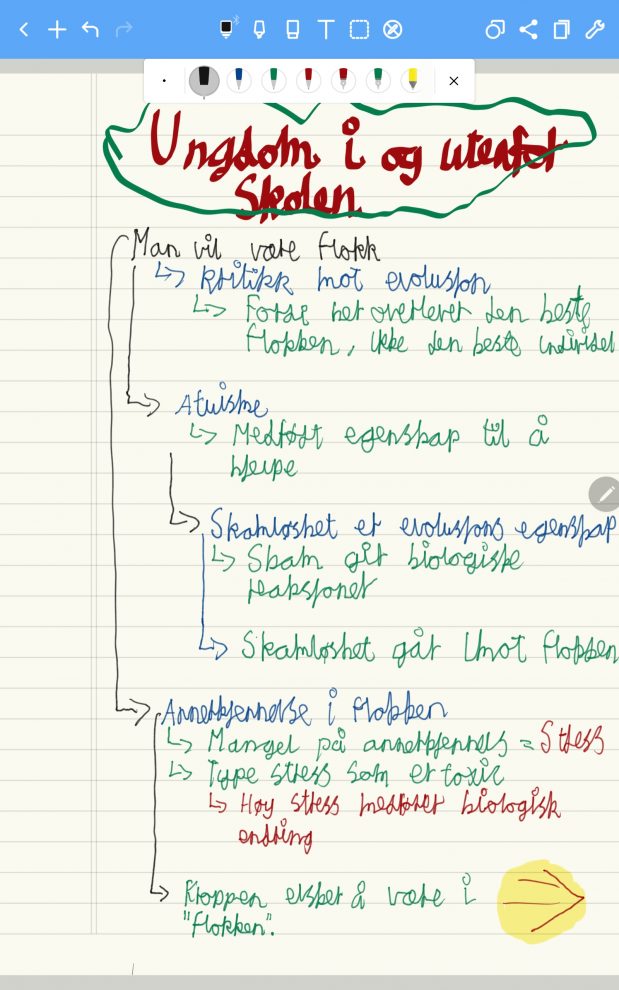 Ungdom i og utenfor
Skolen
Man vil være flokk
↳ Kritikk mot evolusjon
↳ Forsk her overlever den beste
flokken, ikke den beste individet
Atuisme
↳ Medfødt egenskap til å
hjelpe
Skamløshet er evolusjons egenskap
↳ Skam gir biologiske
reaksjoner
↳ Skamløshet går imot flokken
Annerkjennelse i flokken
↳ Mangel på annerkjennels = Stress
↳ Type stress som er toxic
↳ Høy stress medfører biologisk
endring
Kroppen elsker å være i
"flokken".